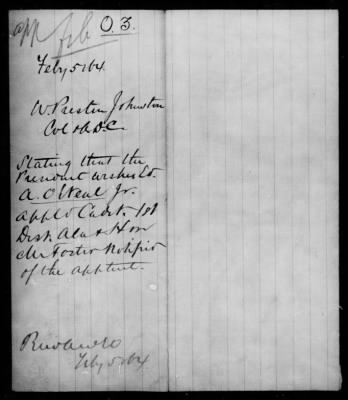 app Feb O. 3.
Feby 5 64
W. Preston Johnston
Col & A.D.C.
Stating that the
President wishes Ed.
A. O'Neal Jr.
app'd Cadet. 1st
Dist. Ala & Hon
Mr Foster notified
of the apptmt.
Recd
Feby 5 64